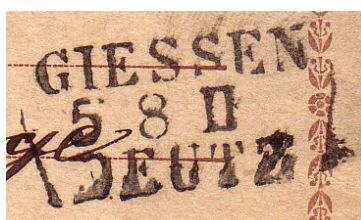 GIESSEN
5 8 II
DEUTZ